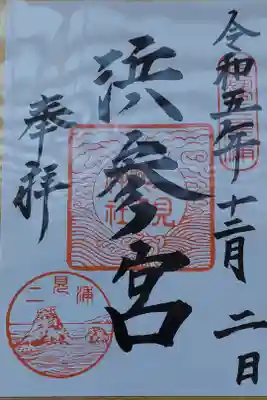 令和五年十二月二日
浜参宮
奉拝
二見浦